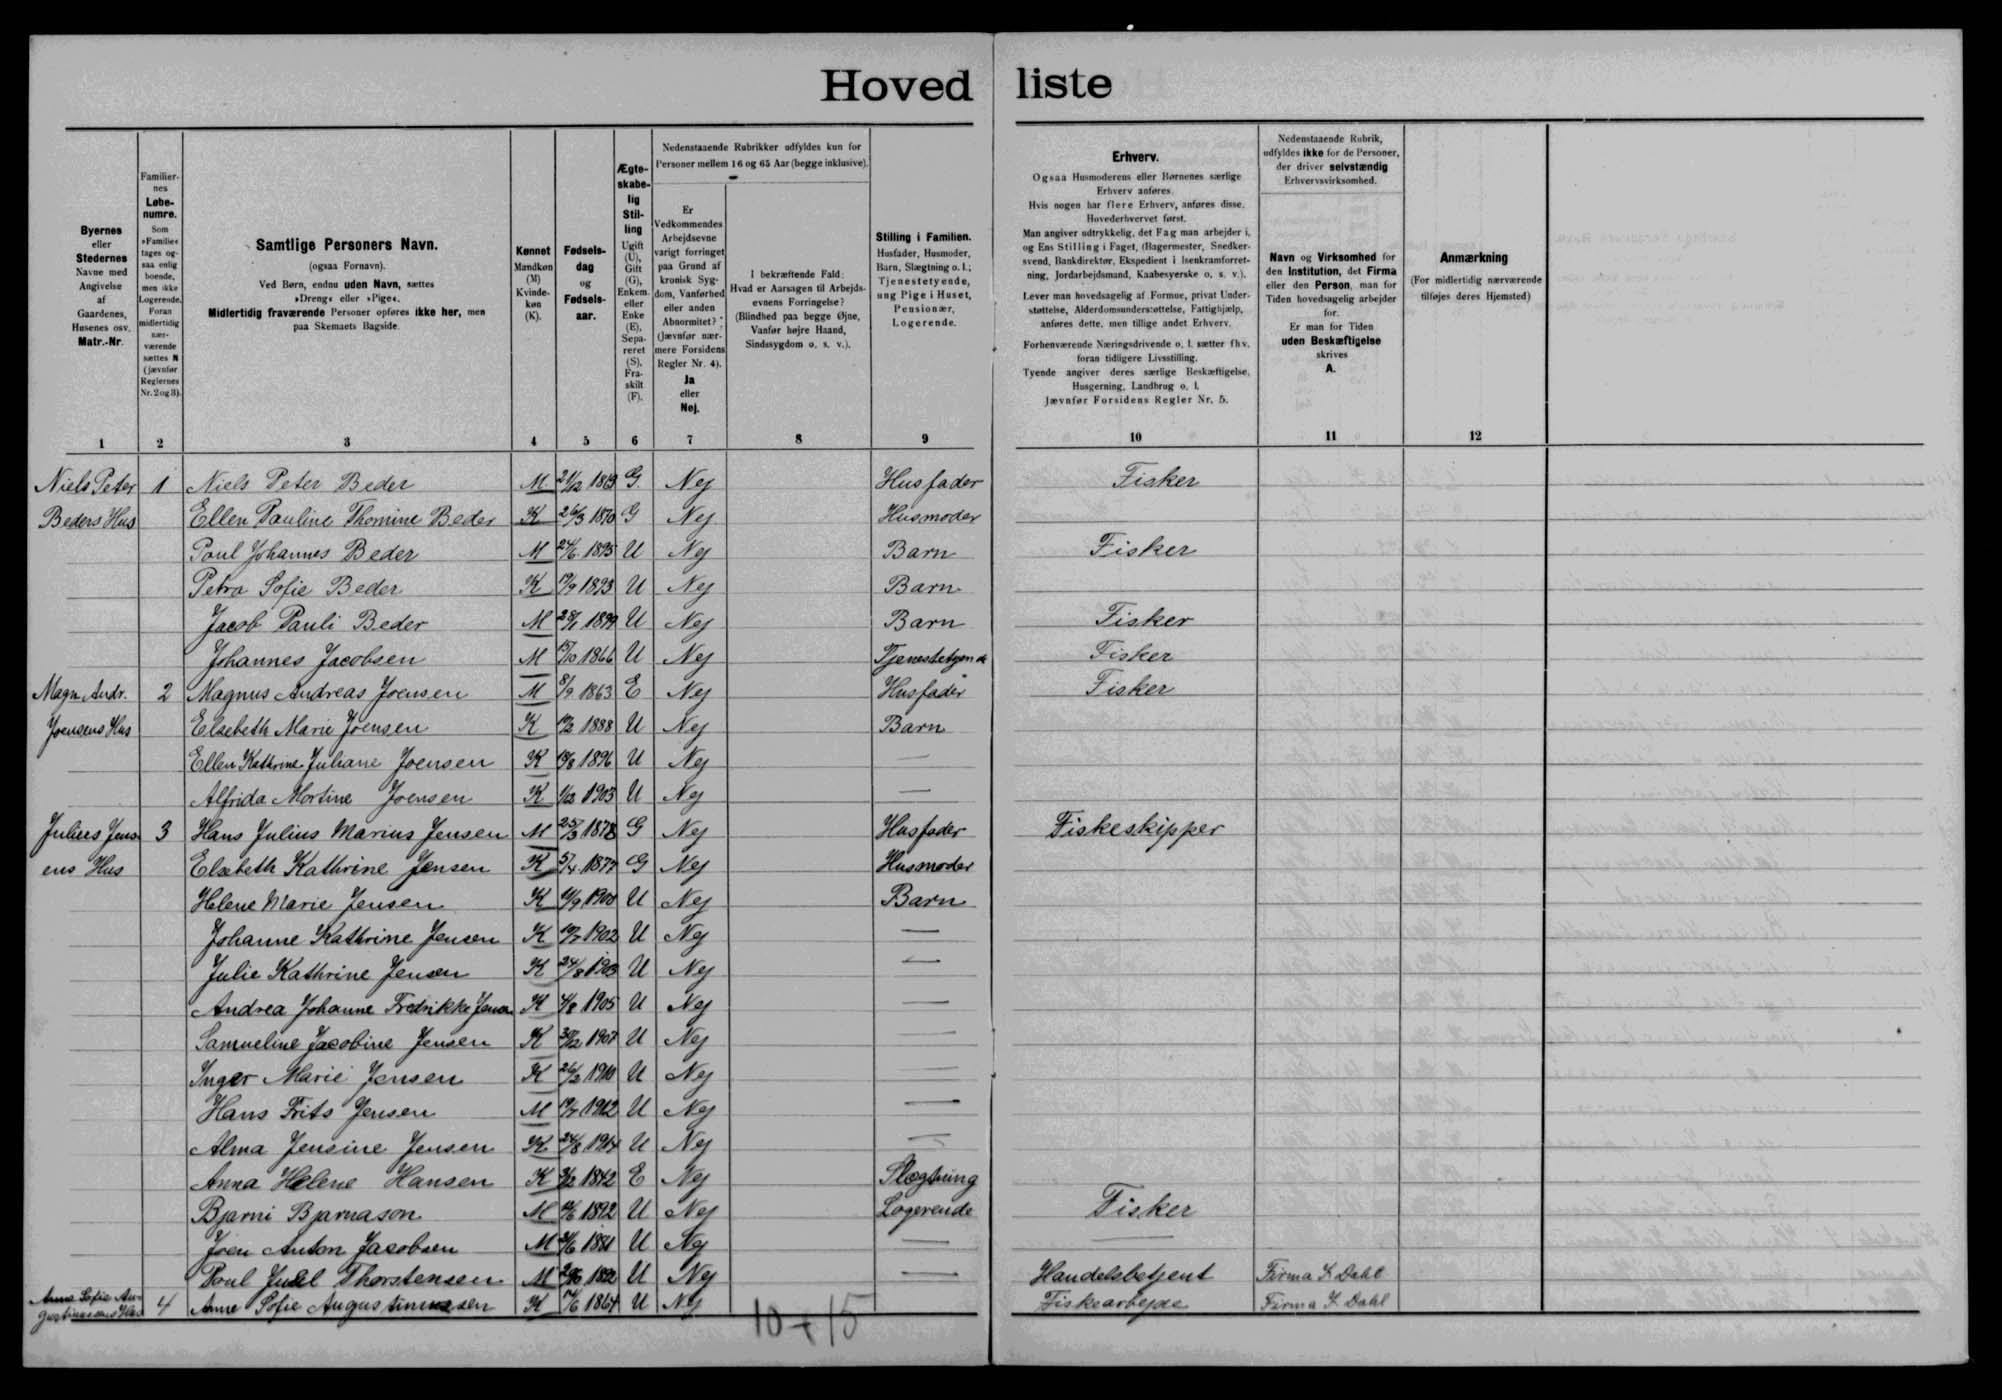 Hoved liste
Byernes eller Stedernes Navne med Angivelse af Gaardenes, Husenes osv. Matr.-Nr.
Familiernes Løbenumre. Som »Familie« tages ogsaa enlig boende, men ikke Logerende. Foran midlertidig nærværende sættes N (jævnfør Reglernes Nr. 2 og 3).
Samtlige Personers Navn.
(ogsaa Fornavn).
Ved Børn, endnu uden Navn, sættes »Dreng« eller »Pige«.
Midlertidig fraværende Personer opføres ikke her, men paa Skemaets Bagside.
Kønnet Mandkøn (M) Kvindekøn (K).
Fødselsdag og Fødselsaar.
Ægteskabelig Stilling Ugift (U), Gift (G), Enkem. eller Enke (E), Separeret (S), Fraskilt (F).
Nedenstaaende Rubrikker udfyldes kun for Personer mellem 16 og 65 Aar (begge inklusive).
Er Vedkommendes Arbejdsevne varigt forringet paa Grund af kronisk Sygdom, Vanførhed eller anden Abnormitet? (Jævnfør nærmere Forsidens Regler Nr. 4). Ja eller Nej.
I bekræftende Fald: Hvad er Aarsagen til Arbejdsevnens Forringelse? (Blindhed paa begge Øjne, Vanfør højre Haand, Sindssygdom o. s. v.).
Stilling i Familien. Husfader, Husmoder, Barn, Slægtning o. l.; Tjenestetyende, ung Pige i Huset, Pensionær, Logerende.
Erhverv.
Ogsaa Husmoderens eller Børnenes særlige Erhverv anføres.
Hvis nogen har flere Erhverv, anføres disse, Hovederhvervet først.
Man angiver udtrykkelig, det Fag man arbejder i, og Ens Stilling i Faget, (Bagermester, Snedkersvend, Bankdirektør, Ekspedient i Isenkramforretning, Jordarbejdsmand, Kaabesyerske o. s. v.).
Lever man hovedsagelig af Formue, privat Understøttelse, Alderdomsunderstøttelse, Fattighjælp, anføres dette, men tillige andet Erhverv.
Forhenværende Næringsdrivende o. l. sætter fhv. foran tidligere Livsstilling.
Tyende angiver deres særlige Beskæftigelse, Husgerning, Landbrug o. l.
Jævnfør Forsidens Regler Nr. 5.
Nedenstaaende Rubrik, udfyldes ikke for de Personer, der driver selvstændig Erhvervsvirksomhed.
Navn og Virksomhed for den Institution, det Firma eller den Person, man for Tiden hovedsagelig arbejder for.
Er man for Tiden uden Beskæftigelse skrives A.
Anmærkning
(For midlertidig nærværende tilføjes deres Hjemsted)
1 2 3 4 5 6 7 8 9 10 11 12
Niels Peter 1 Niels Peter Beder M. 21/12 1863 G. Nej Husfader Fisker
Beders Hus Ellen Pauline Thomine Beder K 26/3 1870 G Nej Husmoder
Poul Johannes Beder M 24/6 1895 U Nej Barn Fisker
Petra Sofie Beder K 17/9 1893 U Nej Barn
Jacob Pauli Beder M 28/1 1899 U Nej Barn Fisker
Johannes Jacobsen M 1866 U Nej Tjenestetyende Fisker
Magn. Andr. 2 Magnus Andreas Joensen M 8/9 1863 E Nej Husfader Fisker
Joensens Hus Elsebeth Marie Joensen K 1888 U Nej Barn
Ellen Kathrine Juliane Joensen K 1896 U Nej —
Alfrida Mortine Joensen K 1/12 1903 U Nej —
Julius Jens 3 Hans Julius Marius Jensen M 25/3 1878 G Nej Husfader Fiskeskipper
ens Hus Elsebeth Kathrine Jensen K 5/4 1877 G Nej Husmoder
Helene Marie Jensen K 1900 U Nej Barn
Johanne Kathrine Jensen K 1902 U Nej —
Julie Kathrine Jensen K 24/8 1903 U Nej —
Andrea Johanne Fredrikke Jensen K 4/8 1905 U Nej —
Samueline Jacobine Jensen K 30/12 1907 U Nej —
Inger Marie Jensen K 26/2 1910 U Nej —
Hans Frits Jensen M 1912 U Nej —
Alma Jensine Jensen K 24/8 1914 U Nej —
Anna Helene Hansen K 1842 E Nej Slægtning
Bjarni Bjarnason M 1892 U Nej Logerende Fisker
Joen Anton Jacobsen M 1881 U Nej — —
Poul Juel Thorstensen M 1892 U Nej — Handelsbetjent Firma J. Dahl
Anna Sofie Au-
gustinussens Hus 4 Anne Sofie Augustinussen K 1864 U Nej Fiskearbejde Firma J. Dahl
10 + 15